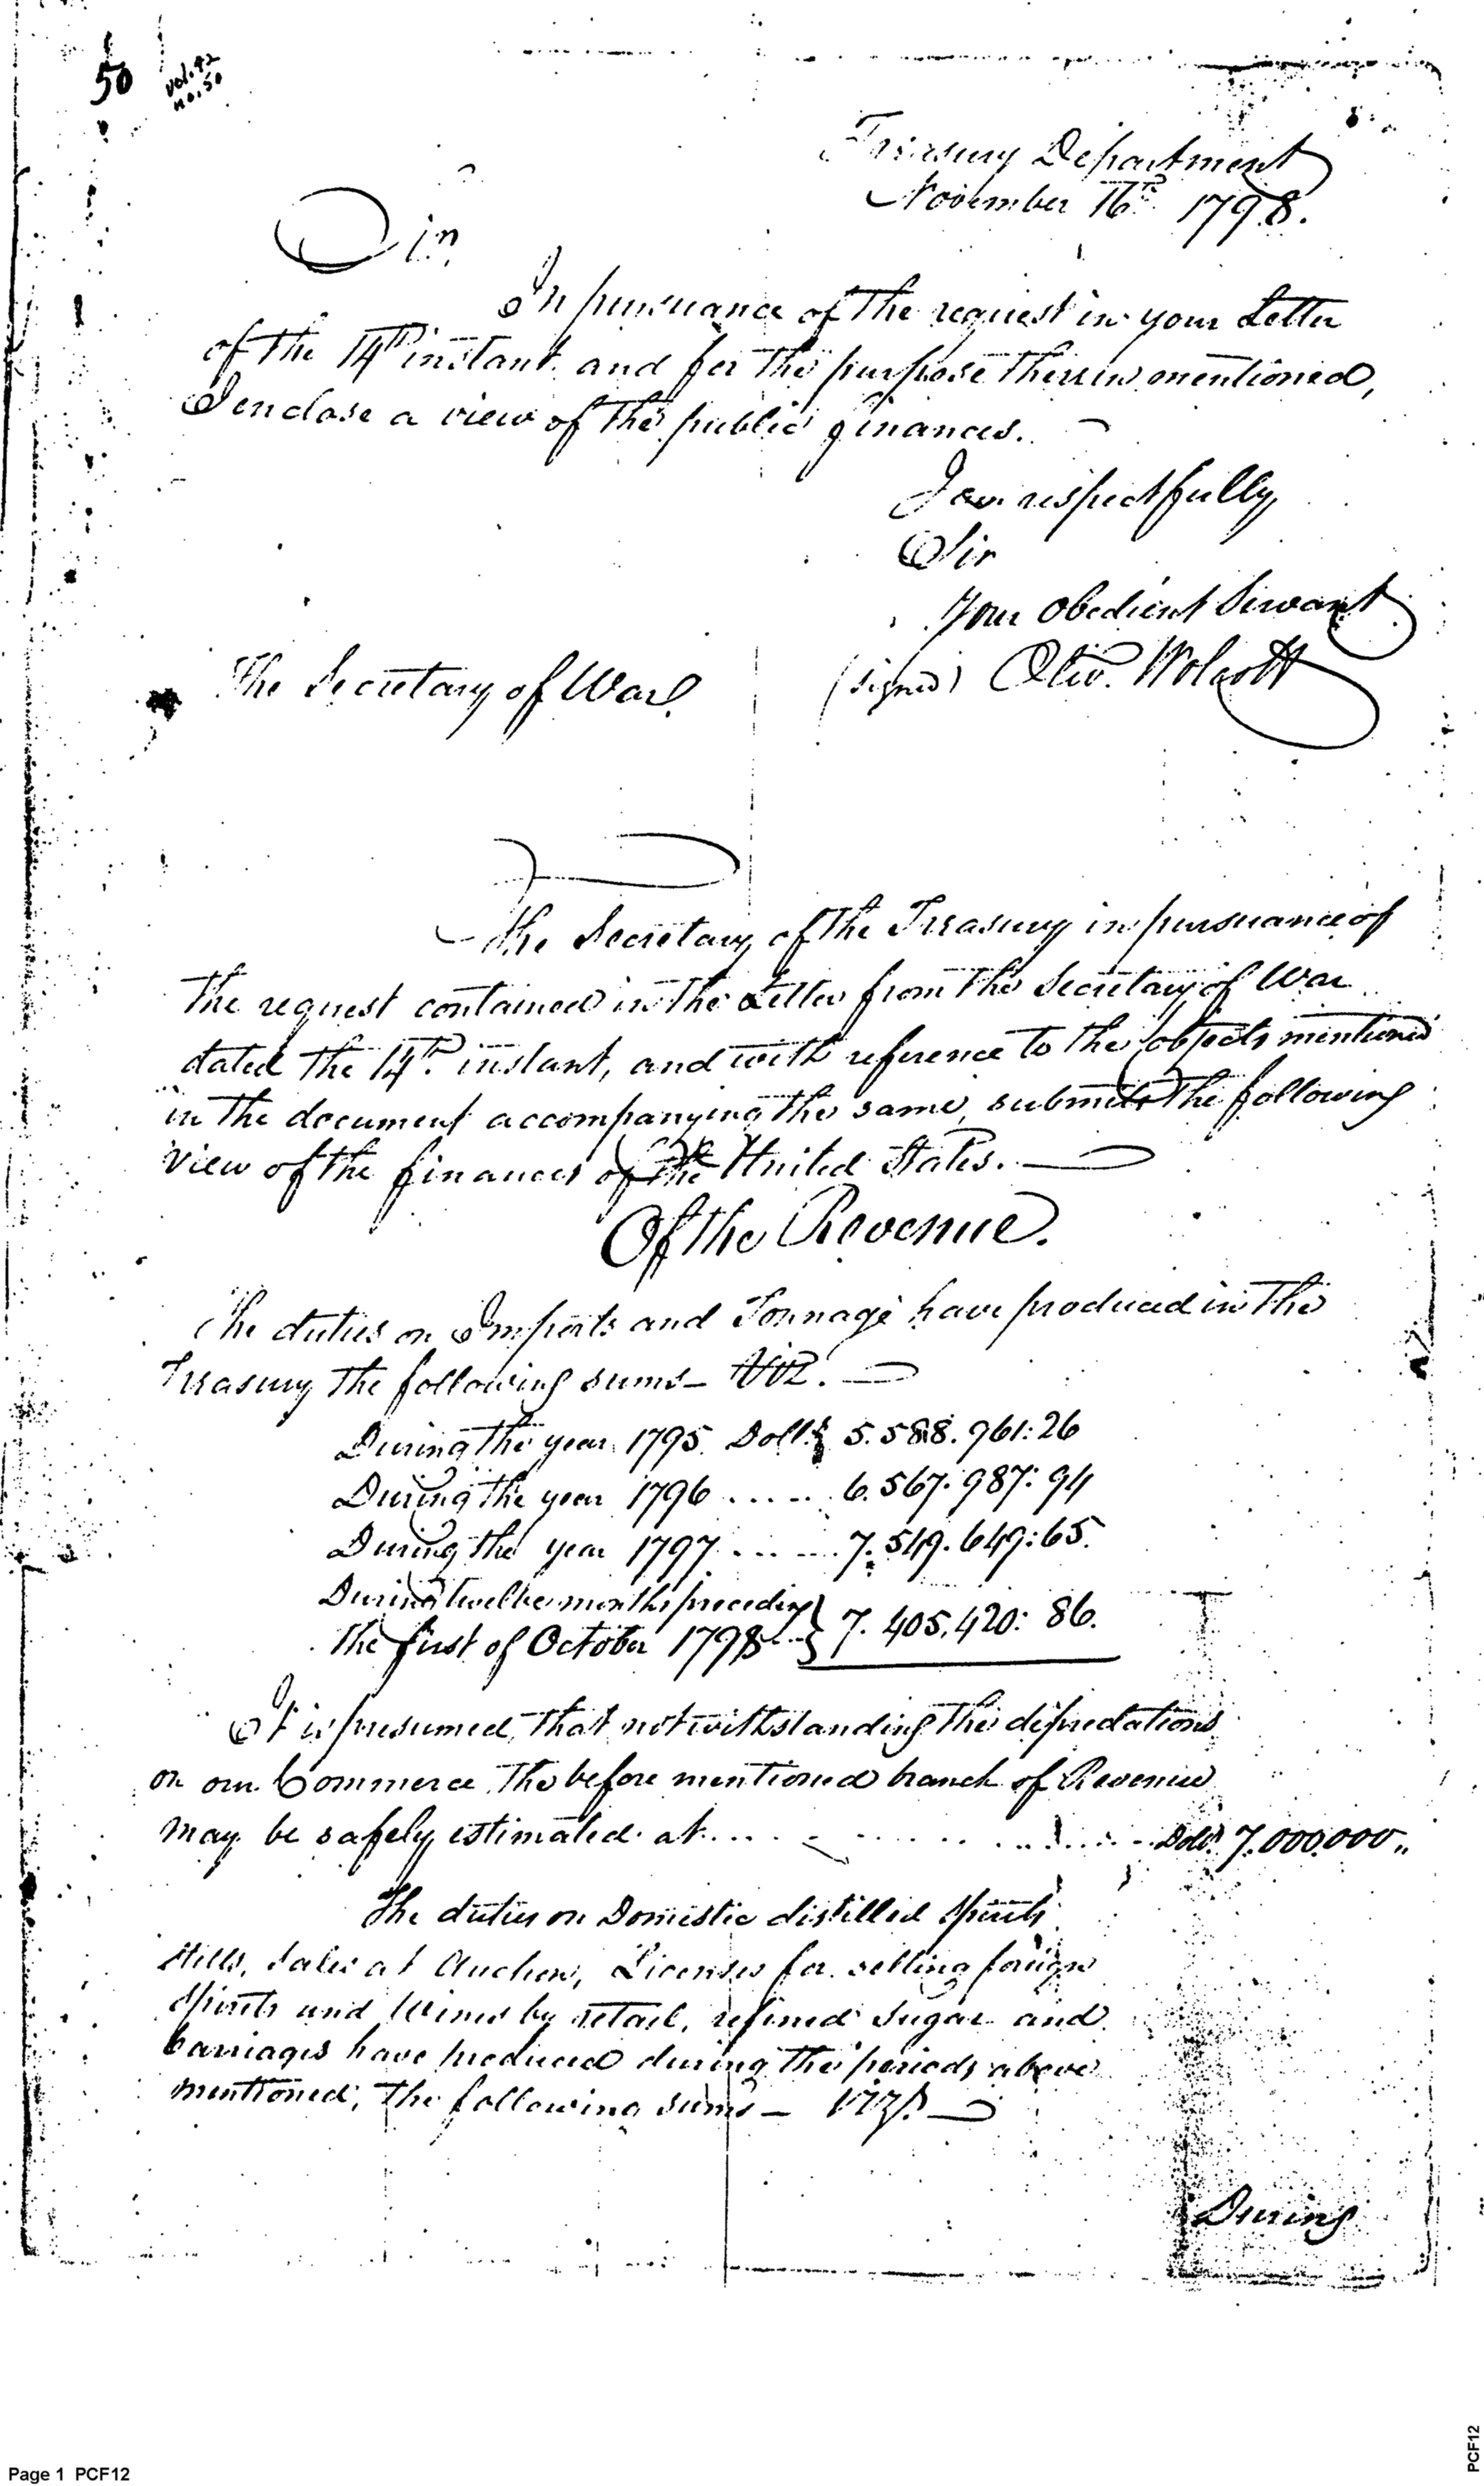 50
vol. 42
no. 50
Treasury Department
November 16th 1798.
Sir,
In pursuance of the request in your Letter
of the 14th instant and for the purpose therein mentioned,
I enclose a view of the public finances.
I am respectfully
Sir
Your Obedient Servant
(signed) Oliv. Wolcott
The Secretary of War.
The Secretary of the Treasury in pursuance of
the request contained in the Letter from the Secretary of War
dated the 14th instant, and with reference to the objects mentioned
in the document accompanying the same, submits the following
view of the finances of the United States.
Of the Revenue.
The duties on Imports and Tonnage have produced in the
Treasury the following sums— Viz.
During the year 1795. Dolls. 5.588.961:26
During the year 1796 ..... 6.567.987:94
During the year 1797 ...... 7.549.649:65.
During twelve months preceding }
the first of October 1798 ... } 7.405.420: 86.
It is presumed, that notwithstanding the depredations
on our Commerce the before mentioned branch of Revenue
may be safely estimated at ........... Dolls. 7.000.000,,
The duties on Domestic distilled Spirits
Stills, Sales at Auction, Licenses for selling foreign
Spirits and Wines by retail, refined Sugar and
Carriages have produced during the periods above
mentioned, the following sums— Viz.
During
Page 1 PCF12
PCF12